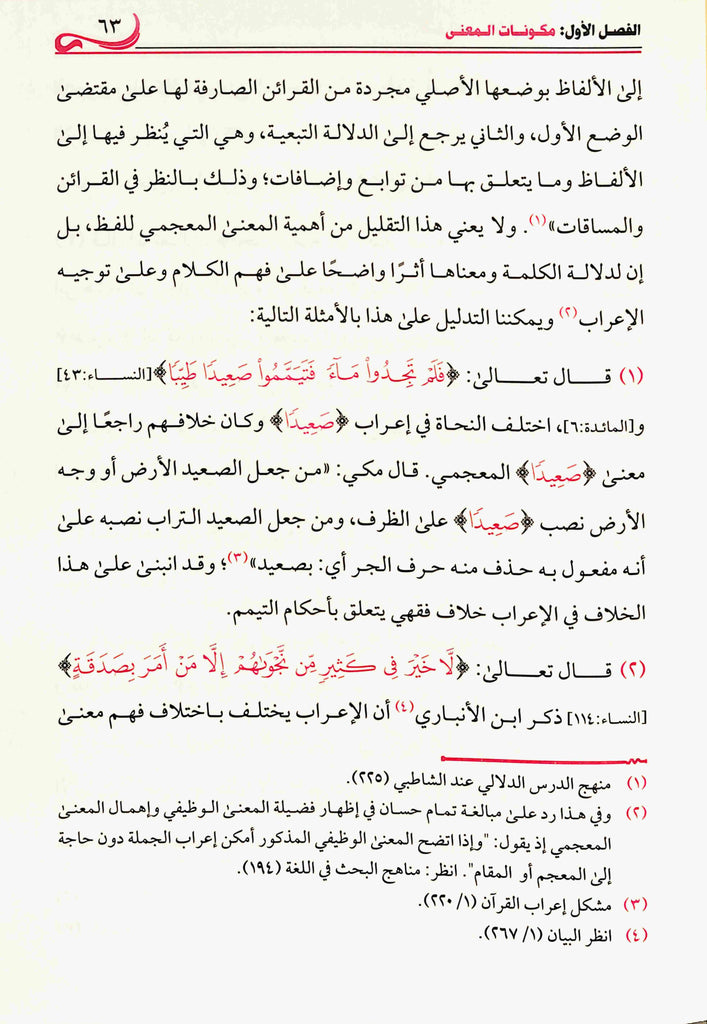 الفصل الأول: مكونات المعنى
٦٣
إلىٰ الألفاظ بوضعها الأصلي مجردة من القرائن الصارفة لها علىٰ مقتضىٰ
الوضع الأول، والثاني يرجع إلىٰ الدلالة التبعية، وهي التي يُنظر فيها إلىٰ
الألفاظ وما يتعلق بها من توابع وإضافات؛ وذلك بالنظر في القرائن
والمساقات»(١). ولا يعني هذا التقليل من أهمية المعنىٰ المعجمي للفظ، بل
إن لدلالة الكلمة ومعناها أثرًا واضحًا علىٰ فهم الكلام وعلىٰ توجيه
الإعراب(٢) ويمكننا التدليل علىٰ هذا بالأمثلة التالية:
(١) قال تعالىٰ: ﴿فَلَمْ تَجِدُوا۟ مَآءً فَتَيَمَّمُوا۟ صَعِيدًا طَيِّبًا﴾ [النساء:٤٣]
و[المائدة:٦]، اختلف النحاة في إعراب ﴿صَعِيدًا﴾ وكان خلافهم راجعًا إلىٰ
معنىٰ ﴿صَعِيدًا﴾ المعجمي. قال مكي: «من جعل الصعيد الأرض أو وجه
الأرض نصب ﴿صَعِيدًا﴾ علىٰ الظرف، ومن جعل الصعيد التراب نصبه علىٰ
أنه مفعول به حذف منه حرف الجر أي: بصعيد»(٣)؛ وقد انبنىٰ علىٰ هذا
الخلاف في الإعراب خلاف فقهي يتعلق بأحكام التيمم.
(٢) قال تعالىٰ: ﴿لَّا خَيْرَ فِى كَثِيرٍ مِّن نَّجْوَىٰهُمْ إِلَّا مَنْ أَمَرَ بِصَدَقَةٍ﴾
[النساء:١١٤] ذكر ابن الأنباري(٤) أن الإعراب يختلف باختلاف فهم معنىٰ
(١) منهج الدرس الدلالي عند الشاطبي (٢٢٥).
(٢) وفي هذا رد علىٰ مبالغة تمام حسان في إظهار فضيلة المعنىٰ الوظيفي وإهمال المعنىٰ
المعجمي إذ يقول: "وإذا اتضح المعنىٰ الوظيفي المذكور أمكن إعراب الجملة دون حاجة
إلىٰ المعجم أو المقام". انظر: مناهج البحث في اللغة (١٩٤).
(٣) مشكل إعراب القرآن (١/ ٢٢٠).
(٤) انظر البيان (١/ ٢٦٧).